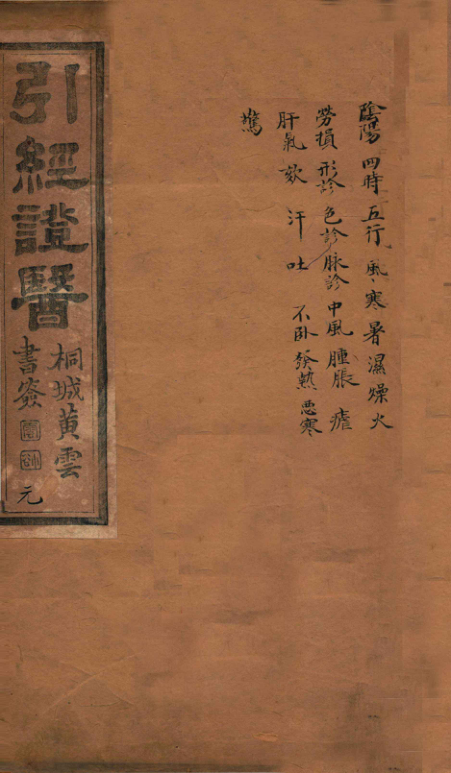 陰陽 四時 五行 風 寒 暑 濕 燥 火
勞損 形診 色診 脉診 中風 腫脹 瘧
肝氣 欬 汗 吐 不卧 發熱 惡寒
驚
引經證醫
桐城黃雲
書簽
元